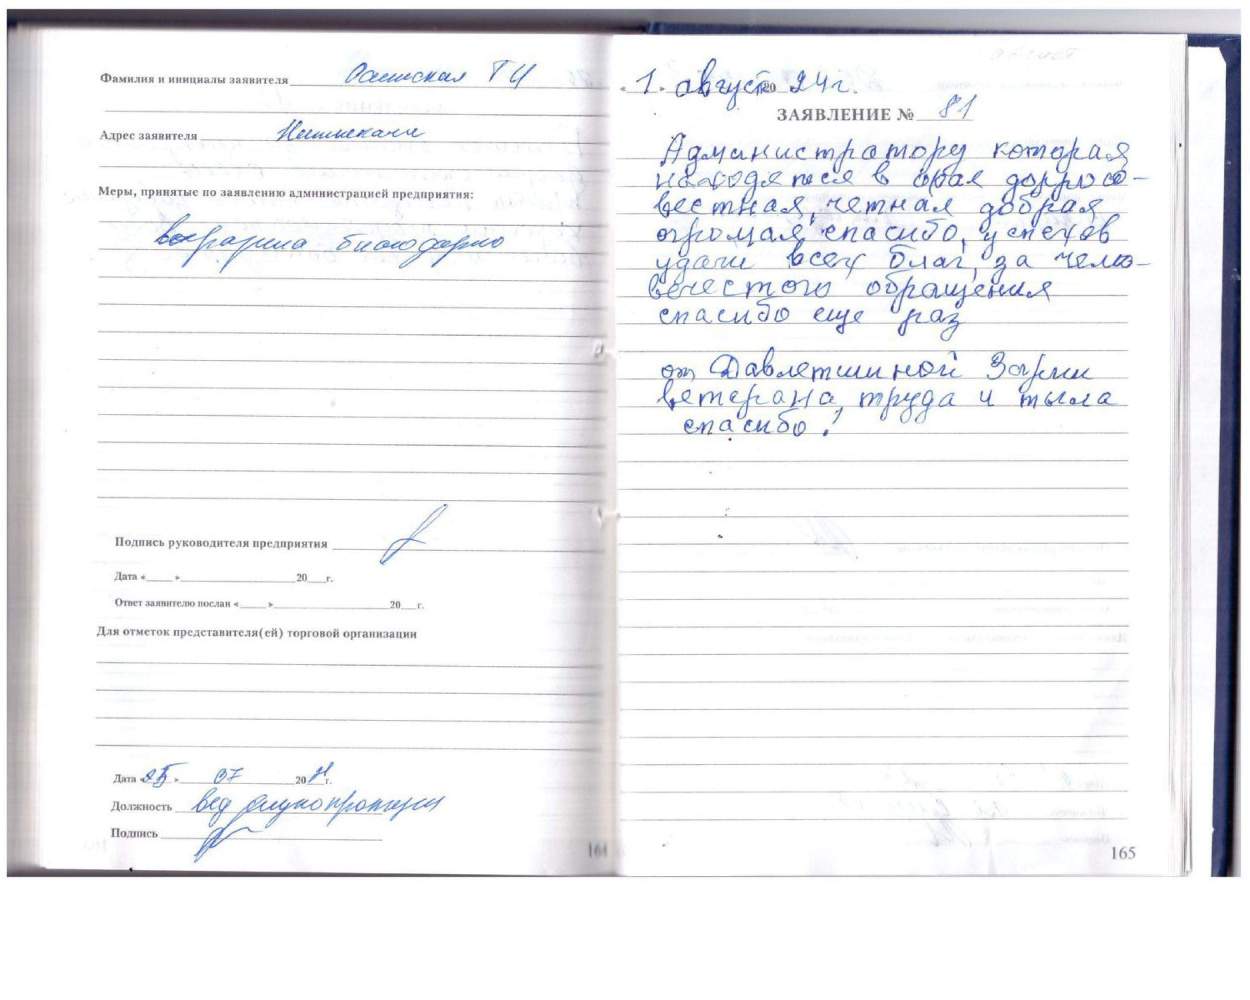 Фамилия и инициалы заявителя
Адрес заявителя
Меры, принятые по заявлению администрацией предприятия:
Подпись руководителя предприятия
Дата «____»____________20___г.
Ответ заявителю послан «____»____________20___г.
Для отметок представителя(ей) торговой организации
Дата « » 07 20 г.
Должность вед
Подпись
164
1. август 20 24 г.
ЗАЯВЛЕНИЕ № 81
Администратору которая
находяться в доррсо-
вестная, четная добрая
огромая, спасибо, успехов
удачи всех благ, за чело-
вечестого обращения
спасибо еще раз
от Давлетшиной Зарии
ветерана, труда и тыла
спасибо!
165